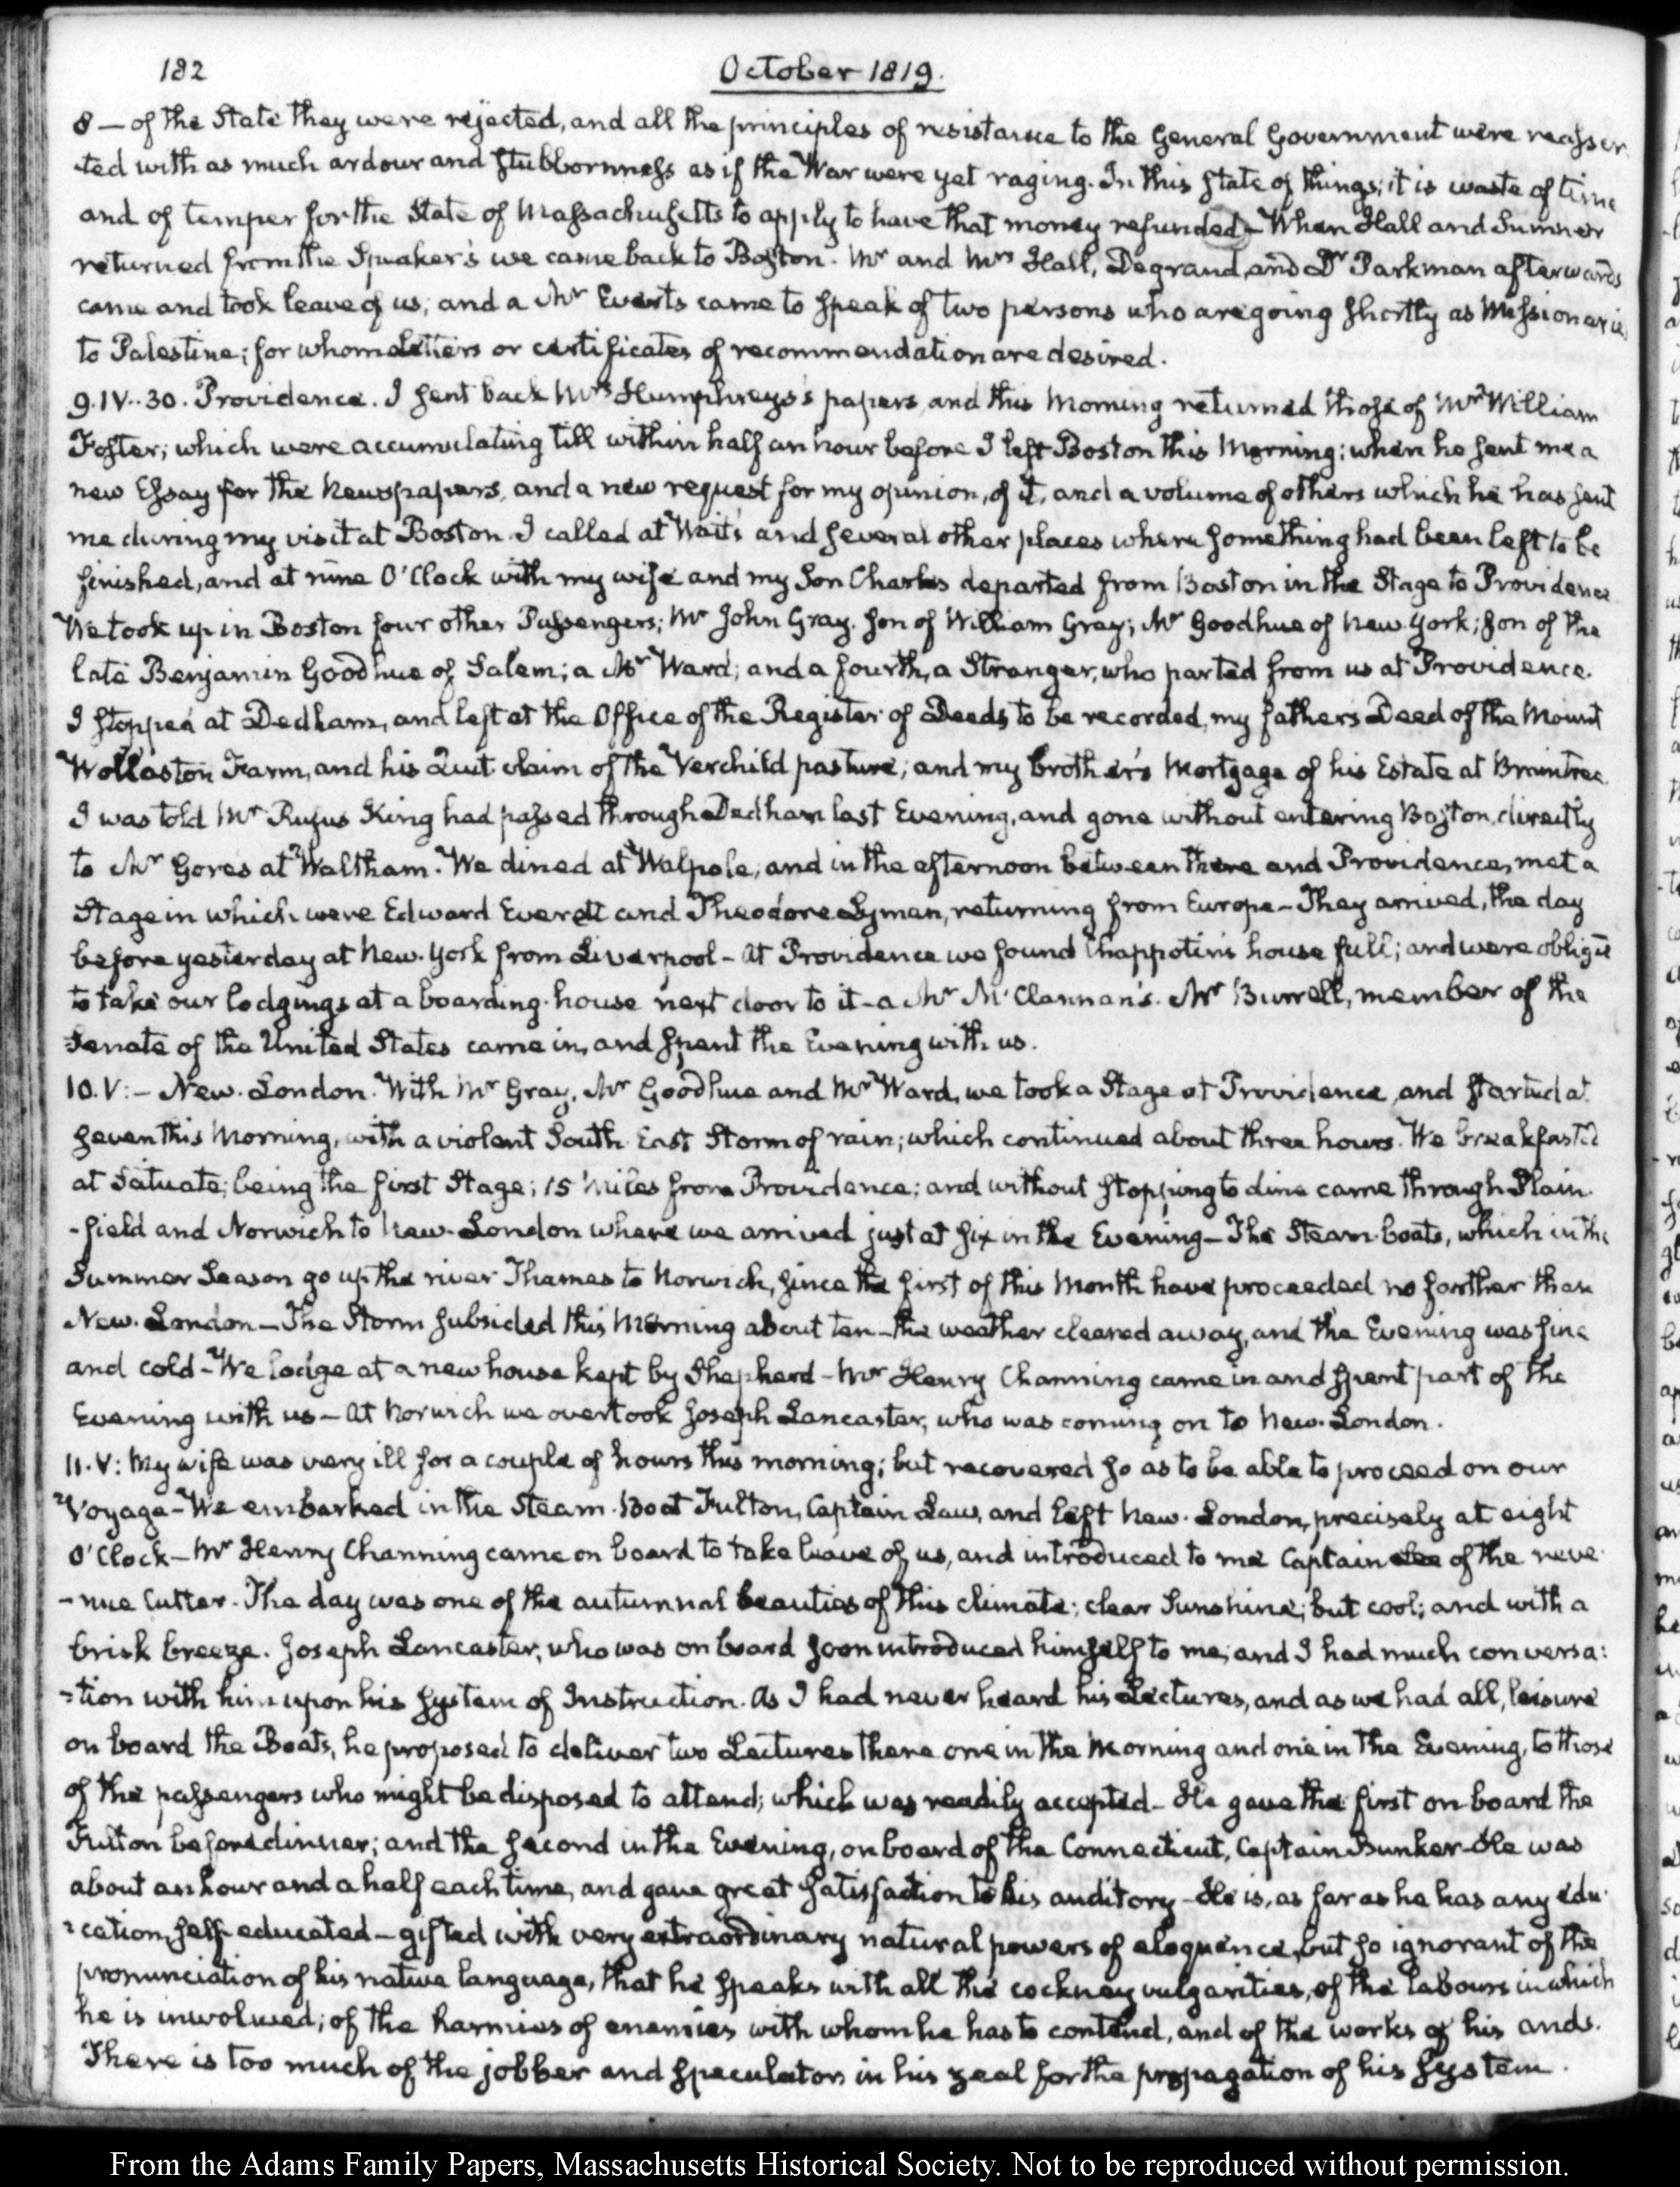 182
October 1819.
8 — of the State they were rejected, and all the principles of resistance to the General Government were reasser
ted with as much ardour and stubbornness as if the War were yet raging. In this state of things; it is waste of time
and of temper for the State of Massachusetts to apply to have that money refunded - When Hall and Sumner
returned from the Speaker's we came back to Boston. Mr and Mrs Hall, Degrand, and Dr Parkman afterwards
came and took leave of us; and a Mr Evarts came to speak of two persons who are going shortly as Missionarie
to Palestine; for whom Letters or certificates of recommendation are desired.
9. IV..30. Providence. I sent back Mrs Humphreys's papers, and this Morning returned those of Mr William
Foster; which were accumulating till within half an hour before I left Boston this Morning; when he sent me a
new Essay for the Newspapers, and a new request for my opinion, of it, and a volume of others which he has sent
me during my visit at Boston. I called at Wait's and several other places where something had been left to be
finished, and at nine O'Clock with my wife and my Son Charles departed from Boston in the Stage to Providence
We took up in Boston four other Passengers; Mr John Gray. son of William Gray; Mr Goodhue of New York; son of the
late Benjamin Goodhue of Salem; a Mr Ward; and a fourth, a Stranger, who parted from us at Providence.
I stopped at Dedham, and left at the Office of the Register of Deeds to be recorded, my fathers Deed of the Mount
Wollaston Farm, and his Quit claim of the Verchild pasture; and my brother's Mortgage of his Estate at Braintree
I was told Mr Rufus King had passed through Dedham last Evening, and gone without entering Boston, directly
to Mr Gores at Waltham. We dined at Walpole, and in the afternoon between there and Providence, met a
Stage in which were Edward Everett and Theodore Lyman, returning from Europe - They arrived, the day
before yesterday at New York from Liverpool - At Providence we found Chappotin's house full; and were obliged
to take our lodgings at a boarding-house next door to it - a Mr McClannan's. Mr Burrell, member of the
Senate of the United States came in, and spent the Evening with us.
10. V:- New-London. With Mr Gray, Mr Goodhue and Mr Ward, we took a Stage at Providence, and started at
seven this Morning, with a violent South East Storm of rain; which continued about three hours. We breakfasted
at Situate; being the first Stage; 15 Miles from Providence; and without stopping to dine came through Plain
-field and Norwich to New-London where we arrived just at six in the Evening - The Steam-boats, which in the
Summer Season go up the river Thames to Norwich, since the first of this Month have proceeded no farther than
New-London - The Storm subsided this Morning about ten - the weather cleared away, and the Evening was fine
and cold - We lodge at a new house kept by Shephard - Mr Henry Channing came in and spent part of the
Evening with us - At Norwich we overtook Joseph Lancaster, who was coming on to New-London.
11. V: My wife was very ill for a couple of hours this morning; but recovered so as to be able to proceed on our
Voyage - We embarked in the Steam-Boat Fulton, Captain Law, and left New-London, precisely at eight
O'Clock - Mr Henry Channing came on board to take leave of us, and introduced to me Captain of the reve
-nue Cutter. The day was one of the autumnal beauties of this climate; clear Sunshine; but cool; and with a
brisk breeze. Joseph Lancaster, who was on board soon introduced himself to me, and I had much conversa:
-tion with him upon his System of Instruction. As I had never heard his Lectures, and as we had all, leisure
on board the Boats, he proposed to deliver two Lectures there one in the Morning and one in the Evening, to those
of the passengers who might be disposed to attend; which was readily accepted - He gave the first on board the
Fulton before dinner; and the second in the Evening, on board of the Connecticut, Captain Bunker - He was
about an hour and a half each time, and gave great satisfaction to his auditory - He is, as far as he has any edu
-cation, self-educated - gifted with very extraordinary natural powers of eloquence, but so ignorant of the
pronunciation of his native language, that he speaks with all the cockney vulgarities, of the labours in which
he is inwolwed; of the harmies of enemies with whom he has to contend, and of the works of his ands.
There is too much of the jobber and speculator in his zeal for the propagation of his System.
From the Adams Family Papers, Massachusetts Historical Society. Not to be reproduced without permission.